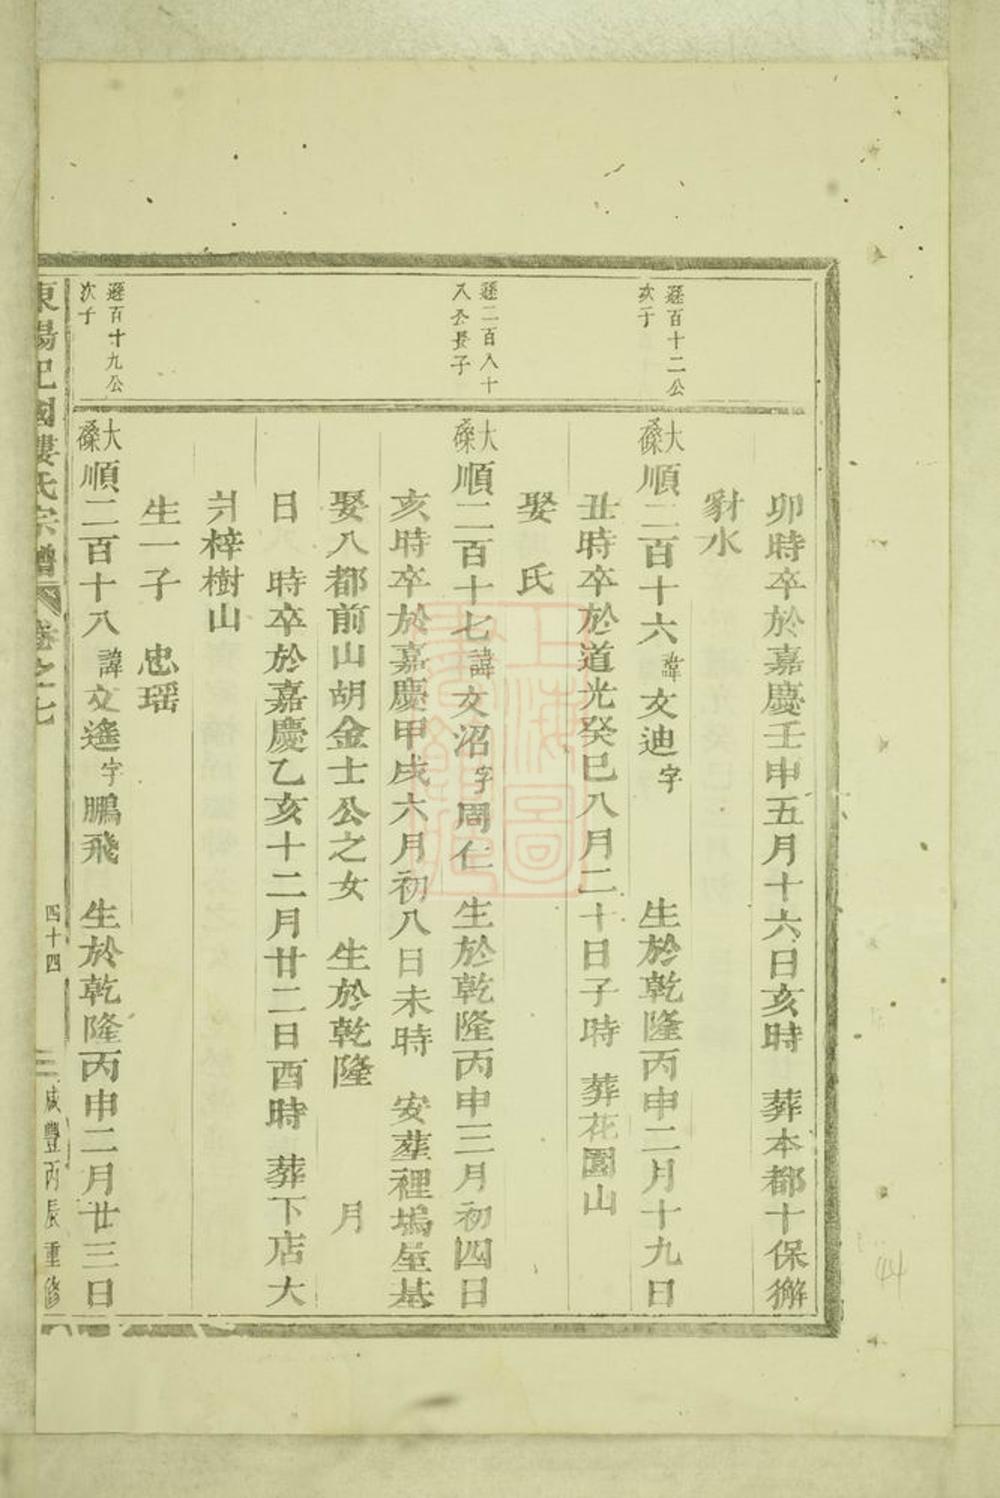 卯時卒於嘉慶壬申五月十六日亥時　葬本都十保獬
豸水
遜百十二公
次子
大磉順二百十六諱文迪字　　生於乾隆丙申二月十九日
丑時卒於道光癸巳八月二十日子時　葬花園山
娶　氏
遜二百八十
八公長子
大磉順二百十七諱文沼字周仁　生於乾隆丙申三月初四日
亥時卒於嘉慶甲戌六月初八日未時　安葬裡塢屋基
娶八都前山胡金士公之女　生於乾隆　　月
日　時卒於嘉慶乙亥十二月廿二日酉時　葬下店大
爿梓樹山
生一子　忠瑶
遜百十九公
次子
大磉順二百十八諱文遙字鵬飛　生於乾隆丙申二月廿三日
東陽紀國婁氏宗譜　卷之七　四十四　咸豐丙辰重修
上海圖書館藏
44